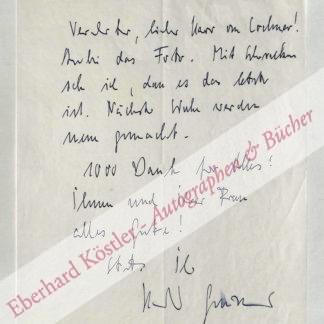 Verehrter, lieber Herr von Cochmar!
Anbei das Foto. Mit Schrecken
seh ich, dass es das letzte
ist. Nächste Woche werden
neue gemacht.
1000 Dank für Alles!
Ihnen und Ihrer Frau
alles Gute!
Stets Ihr
Eberhard Köstler - Autographen & Bücher